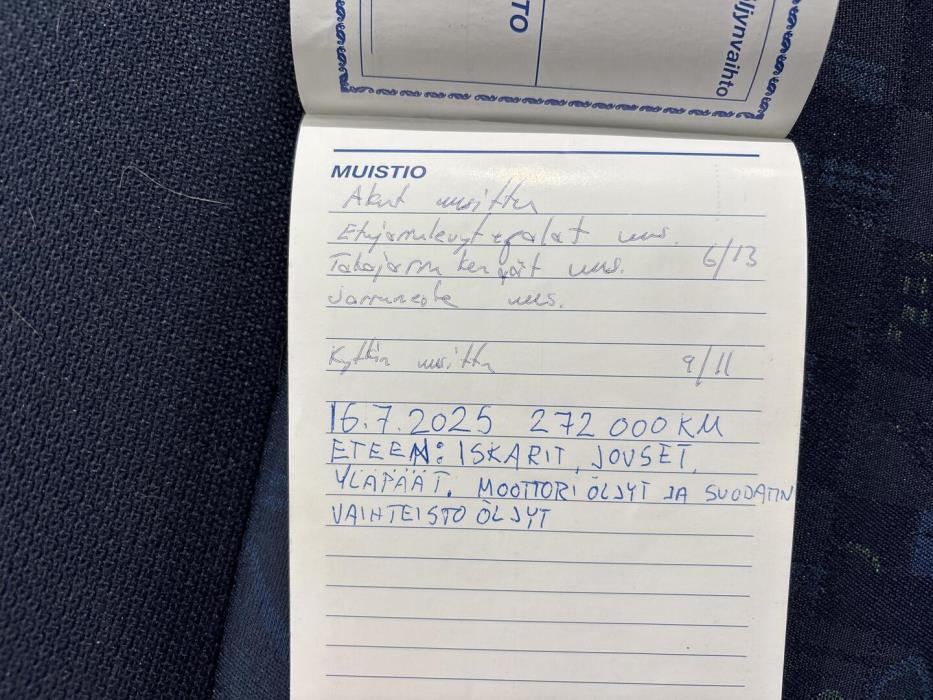 TO
ljynvaihto
MUISTIO
Akut uusittu
Etujarrulevyt + palat uus.
6/13
Takajarru kengät uus.
Jarruneste uus.
Kytkin uusittu 9/11
16.7.2025 272 000 KM
ETEEN: ISKARIT, JOUSET,
YLÄPÄÄT. MOOTTORI ÖLJYT JA SUODATIN
VAIHTEISTO ÖLJYT